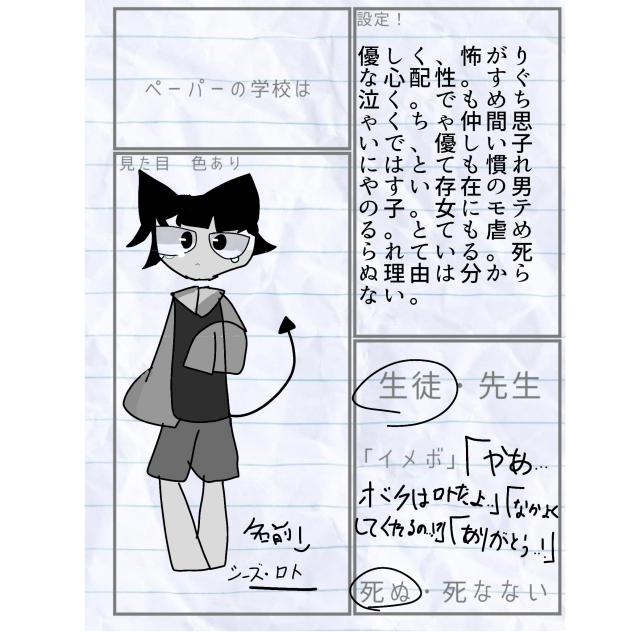 ペーパーの学校は
設定！
優しく、怖がり
な心配性。すぐ
泣く。でもめち
ゃくちゃ仲間思
いで、優しい子
にはとても慣れ
やすい存在の男
の子。女にモテ
る。とても虐め
られている。死
ぬ理由は分から
ない。
見た目　色あり
名前！
シーズ・ロト
生徒・先生
「イメボ」「やあ...
ボクはロトだよ..」「なかよく
してくれるの...!?」「ありがとう...!」
死ぬ・死なない